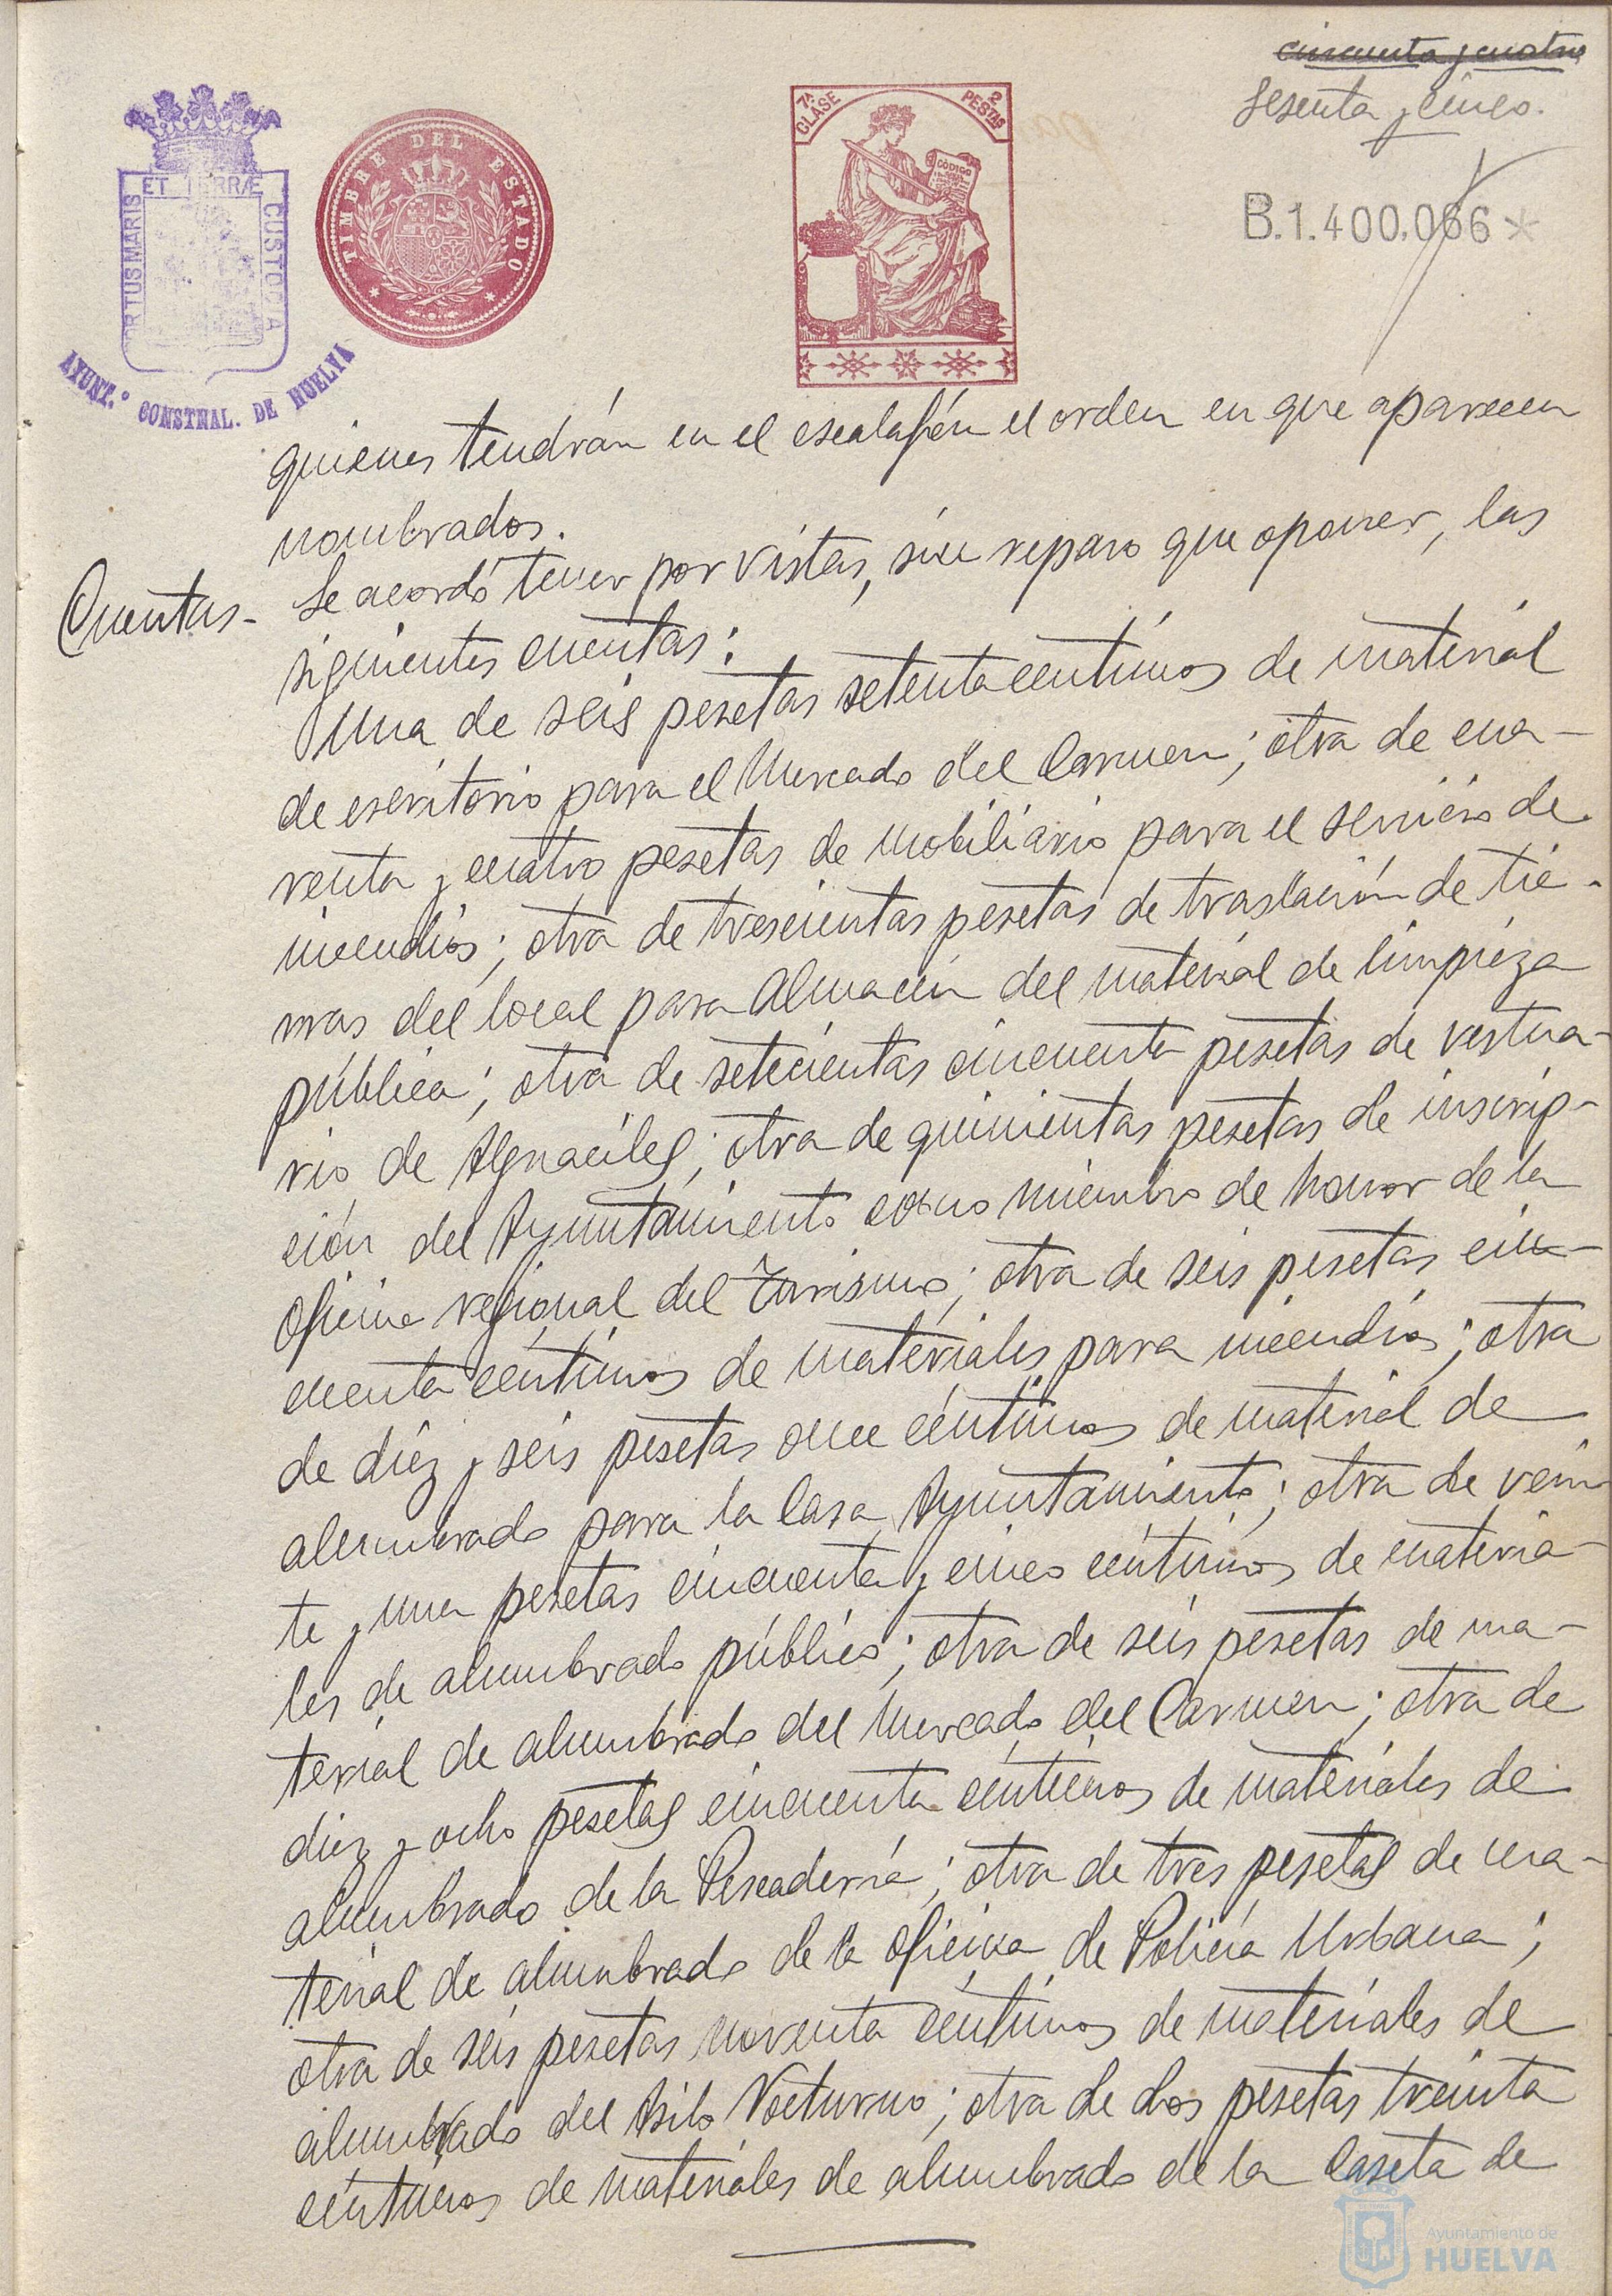 cincuenta y cuatro
sesenta y cinco.
7ª CLASE
2 PESETAS
CÓDIGO
TIMBRE DEL ESTADO
PORTUS MARIS ET TERRÆ CUSTODIA
AYUNT.º CONSTNAL. DE HUELVA
B.1.400.066*
quienes tendrán en el escalafón el orden en que aparecen
nombrados.
Cuentas- Se acordó tener por vistas, sin reparo que oponer, las
siguientes cuentas:
Una de seis pesetas setenta centimos de material
de escritorio para el Mercado del Carmen; otra de cua-
renta y cuatro pesetas de mobiliario para el servicio de
incendios; otra de trescientas pesetas de traslación de tie-
rras del local para Almacén del material de limpieza
pública; otra de setecientas cincuenta pesetas de vestua-
rio de Alguaciles; otra de quinientas pesetas de inscrip-
ción del Ayuntamiento como miembro de honor de la
oficina regional del Turismo; otra de seis pesetas cin-
cuenta céntimos de materiales para incendios; otra
de diez y seis pesetas once céntimos de material de
alumbrado para la Casa Ayuntamiento; otra de vein
te y una pesetas cincuenta y cinco céntimos de materia-
les de alumbrado público; otra de seis pesetas de ma-
terial de alumbrado del Mercado del Carmen; otra de
diez y ocho pesetas cincuenta céntimos de materiales de
alumbrado de la Pescadería; otra de tres pesetas de ma-
terial de alumbrado de la oficina de Policía Urbana;
otra de seis pesetas noventa céntimos de materiales de
alumbrado del Asilo Nocturno; otra de dos pesetas treinta
céntimos de materiales de alumbrado de la Caseta de
Ayuntamiento de
HUELVA